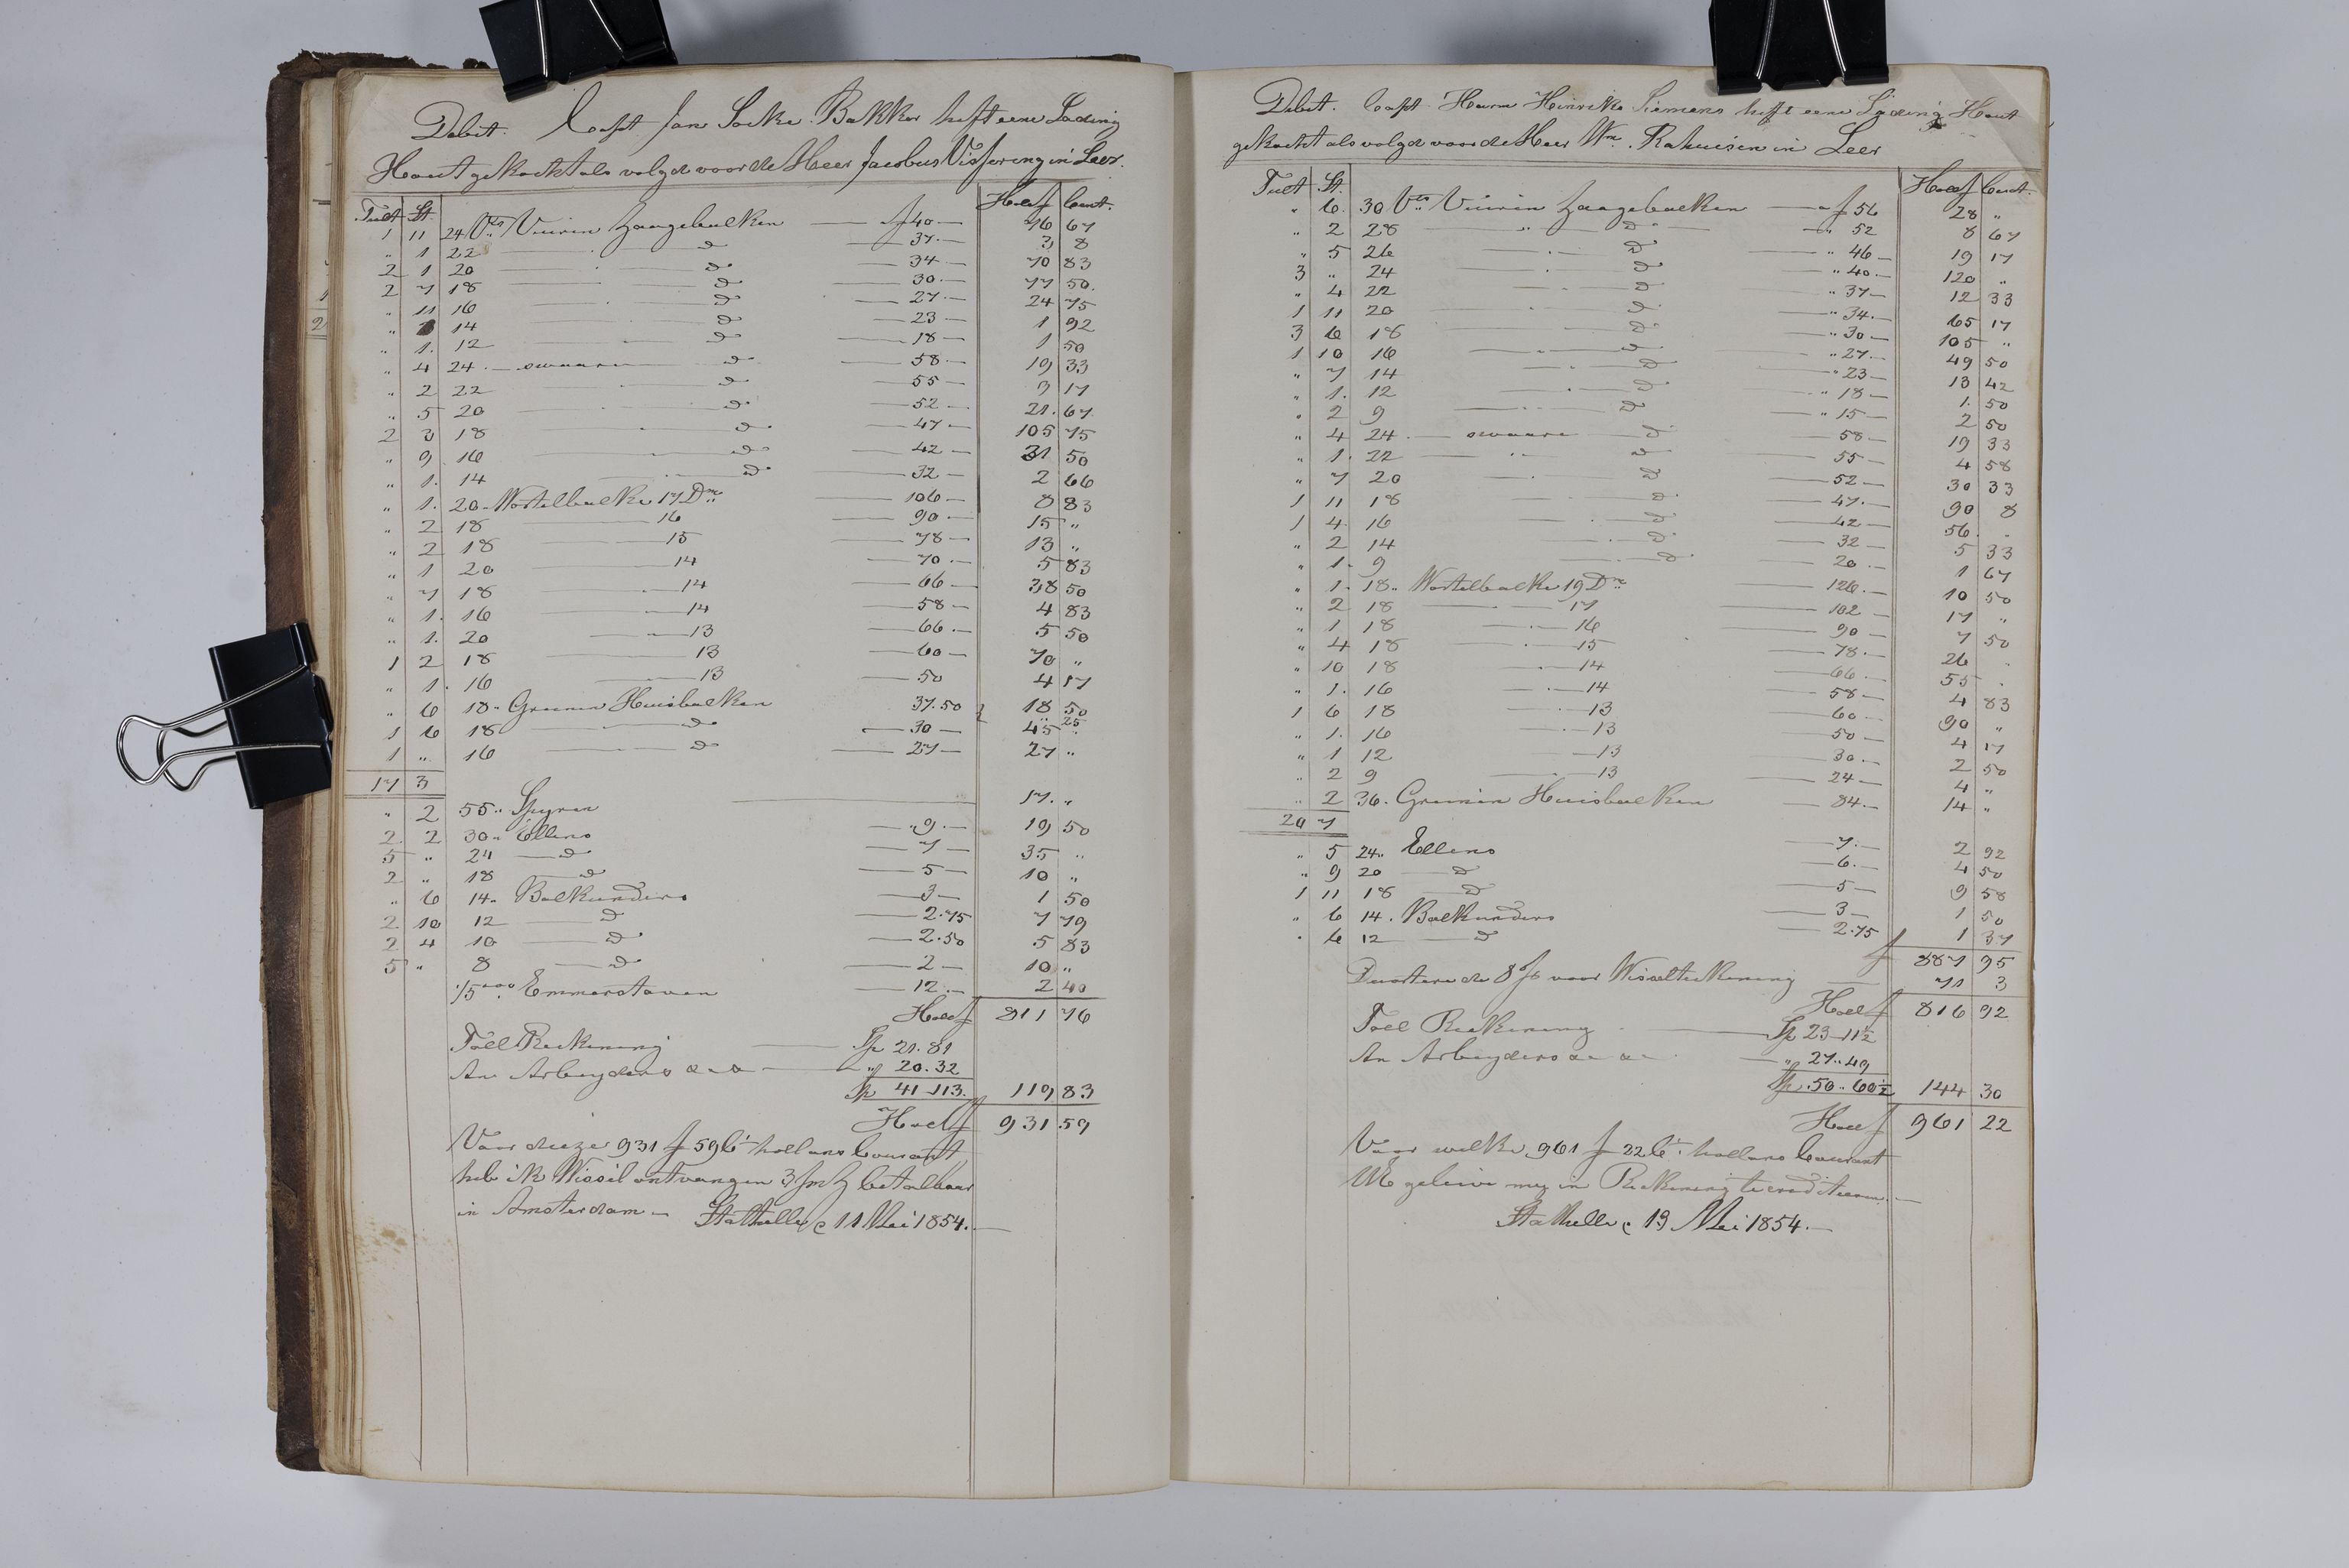 Debit. Capt Jan Socke Bakker heft eene Lading
Hout gekocht als volgd voor de Heer Jacobus Vissering in Leer.
Tult St. Holl f Cent.
1 11 24 Vts Vuiren Zaagebalken — f 40 — 76 67
„ 1 22 — d — 37 — 3 8
2 1 20 — d — 34 — 70 83
2 7 18 — d — 30 — 77 50.
„ 11 16 — d — 27 — 24 75
„ 14 — d — 23 — 1 92
„ 1. 12 — d — 18 — 1 50
„ 4 24 — swaare d — 58 — 19 33
„ 2 22 — d — 55 — 9 17
„ 5 20 — d — 52 — 21. 67
2 3 18 — d — 47 — 105 75
„ 9 16 — d — 42 — 31 50
„ 1. 14 — d — 32 — 2 66
„ 1. 20 Wortelbalke 17 Dm — 106 — 8 83
„ 2 18 — 16 — 90 — 15 „
„ 2 18 — 15 — 78 — 13 „
„ 1 20 — 14 — 70 — 5 83
„ 7 18 — 14 — 66 — 38 50
„ 1. 16 — 14 — 58 — 4 83
„ 1. 20 — 13 — 66 — 5 50
1 2 18 — 13 — 60 — 70 „
„ 1. 16 — 13 — 50 4 17
„ 6 18 „ Greenen Huisbalken 37.50 18 50
1 6 18 — d — 30 — 45 „
1 „ 16 — d — 27 — 27 „
17 3
„ 2 55 „ Spyren — 17. „
2 2 30 „ Ellens — 9 — 19 50
5 „ 24 — d — 7 — 35 „
2 „ 18 — d — 5 — 10 „
„ 6 14 „ Balkunders — 3 — 1 50
2 10 12 — d — 2.75 7 79
2 4 10 — d — 2.50 5 83
5 „ 8 — d — 2 — 10 „
1/5000 Emmerstaven — 12 — 2 40
Holl f 811 76
Toll Reekening — Sp 21.81
An Arbeyders — „ 20.32
Sp 41 113. 119 83
Holl f 931 59
Voor dieze 931 f 59 Ct hollans Courant
heb ik Wissil ontvangen 3 betalbaar
in Amsterdam — Stathelle 11 Mei 1854. —
Debit. Capt Harm Hinriks Siemens hefft eene Lading Hout
gekocht als volgd voor de Heer Wm. Rahusen in Leer
Tult St. Holl f Cent.
„ 6 30 Vts Vuiren Zaagebalken — f 56 28 „
„ 2 28 — D — „ 52 8 67
„ 5 26 — D — „ 46 — 19 17
3 „ 24 — d — „ 40 — 120 „
„ 4 22 — d — „ 37 — 12 33
1 11 20 — d — „ 34 — 65 17
3 6 18 — d — „ 30 — 105 „
1 10 16 — d — „ 27 — 49 50
„ 7 14 — d — „ 23 — 13 42
„ 1. 12 — d — „ 18 — 1. 50
„ 2 9 — d — „ 15 — 2 50
„ 4 24 — swaare d — 58 — 19 33
„ 1. 22 — d — 55 — 4 58
„ 7 20 — d — 52 — 30 33
1 11 18 — d — 47 — 90 8
1 4 16 — d — 42 — 56 „
„ 2 14 — d — 32 — 5 33
„ 1. 9 — d — 20 — 1 67
„ 1. 18 „ Wortelbalke 19 Dm — 126 — 10 50
„ 2 18 — 17 — 102 — 17 „
„ 1 18 — 16 — 90 — 7 50
„ 4 18 — 15 — 78 — 26 „
„ 10 18 — 14 — 66 — 55 „
„ 1. 16 — 14 — 58 — 4 83
1 6 18 — 13 — 60 — 90 „
„ 1. 16 — 13 — 50 — 4 17
„ 1 12 — 13 — 30 — 2 50
„ 2 9 — 13 — 24 — 4 „
„ 2 36 Greenen Huisbalken — 84 — 14 „
20 7
„ 5 24 „ Ellens — 7 — 2 92
„ 9 20 — d — 6 — 4 50
1 11 18 — d — 5 — 9 58
„ 6 14. Balkunders — 3 — 1 50
„ 6 12 — d — 2.75 1 37
f 887 95
de 8 % voor Wisseltrekening — 71 3
Holl f 816 92
Toll Reekening — Sp 23 11½
An Arbeyders — „ 27 .. 49
Sp .50 .. 60½ 144 30
Holl f 961 22
Voor welke 961 f 22 Ct hollans Courant
UE geleive my in Reekening te crediteeren —
Stathelle 19 Mei 1854. —